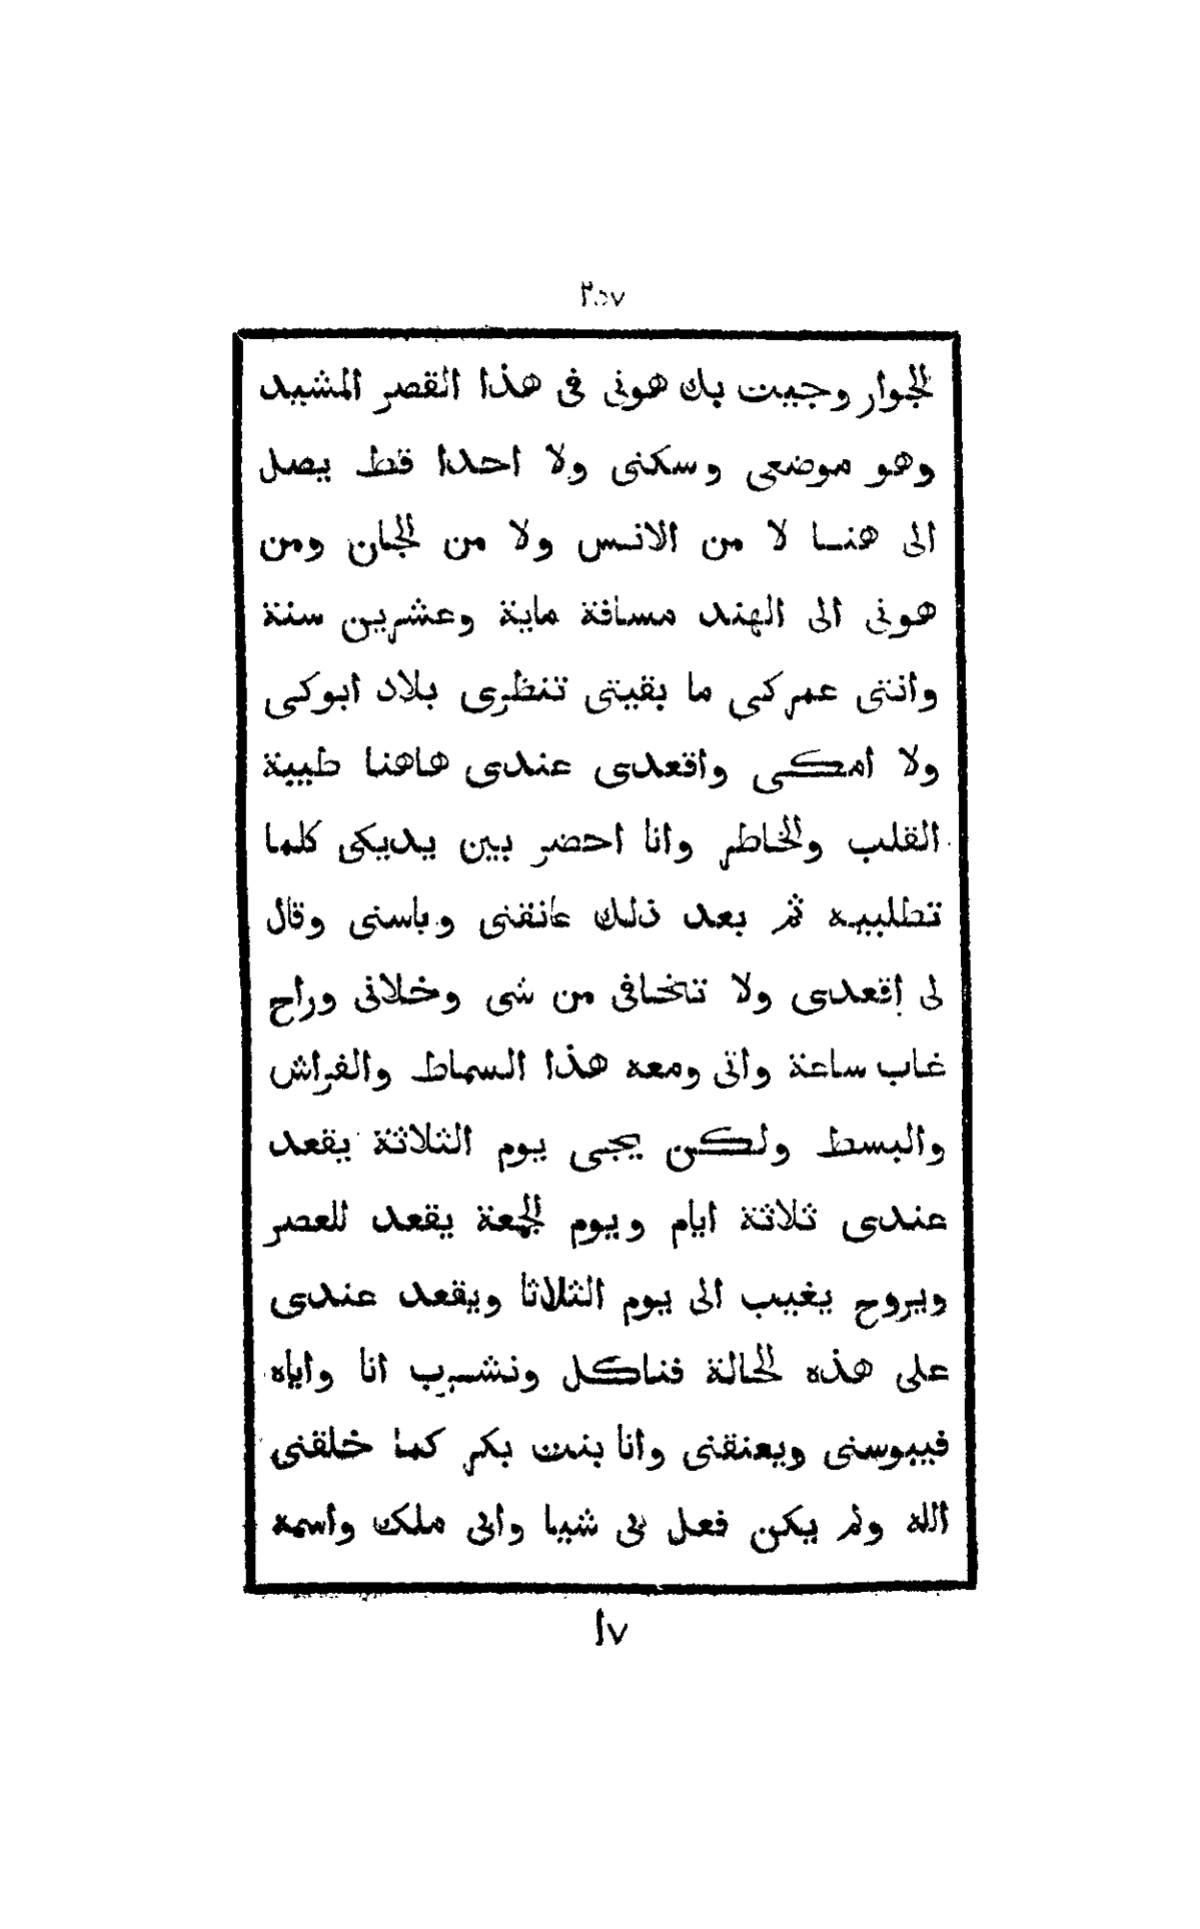 ٢٥٧
الجوار وجيت بك هونى فى هذا القصر المشيد
وهو موضعى وسكنى ولا احدا قط يصل
الى هنا لا من الانس ولا من الجان ومن
هونى الى الهند مسافة ماية وعشرين سنة
وانتى عمركى ما بقيتى تنظرى بلاد ابوكى
ولا امكى واقعدى عندى هاهنا طيبة
القلب والخاطر وانا احضر بين يديكى كلما
تطلبيه ثم بعد ذلك عانقنى وباسنى وقال
لى اقعدى ولا تخافى من شى وخلانى وراح
غاب ساعة واتى ومعه هذا السماط والفراش
والبسط ولكن يجى يوم الثلاثة يقعد
عندى ثلاثة ايام ويوم الجمعة يقعد للعصر
ويروح يغيب الى يوم الثلاثا ويقعد عندى
على هذه الحالة فناكل ونشرب انا واياه
فيبوسنى ويعنقنى وانا بنت بكر كما خلقنى
الله ولم يكن فعل بى شيا وابى ملك واسمه
١٧